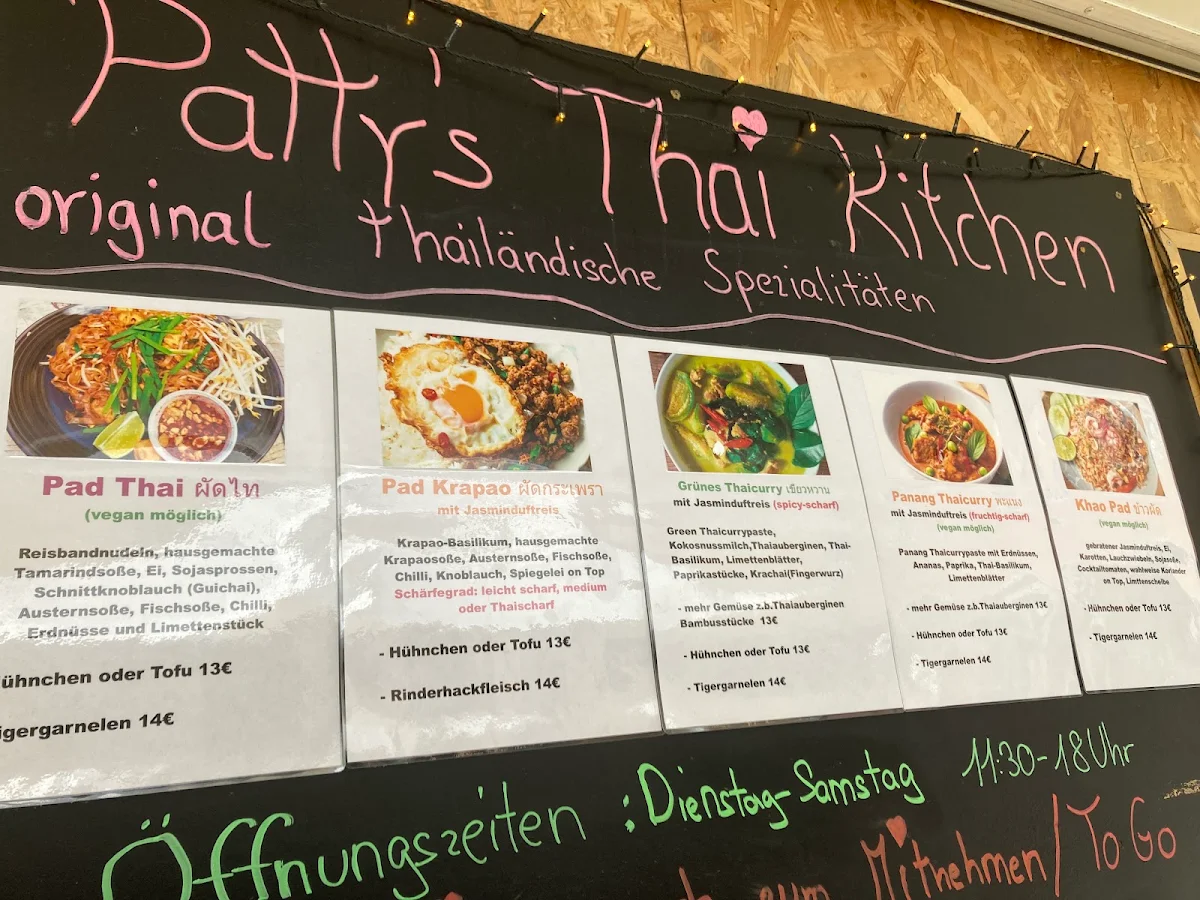 Patty's Thai Kitchen
original thailändische Spezialitäten
Pad Thai ผัดไท
(vegan möglich)
Reisbandnudeln, hausgemachte
Tamarindsoße, Ei, Sojasprossen,
Schnittknoblauch (Guichai),
Austernsoße, Fischsoße, Chilli,
Erdnüsse und Limettenstück
ühnchen oder Tofu 13€
igergarnelen 14€
Pad Krapao ผัดกระเพรา
mit Jasminduftreis
Krapao-Basilikum, hausgemachte
Krapaosoße, Austernsoße, Fischsoße,
Chilli, Knoblauch, Spiegelei on Top
Schärfegrad: leicht scharf, medium
oder Thaischarf
- Hühnchen oder Tofu 13€
- Rinderhackfleisch 14€
Grünes Thaicurry เขียวหวาน
mit Jasminduftreis (spicy-scharf)
Green Thaicurrypaste,
Kokosnussmilch,Thaiauberginen, Thai-
Basilikum, Limettenblätter,
Paprikastücke, Krachai(Fingerwurz)
- mehr Gemüse z.b.Thaiauberginen
Bambusstücke 13€
- Hühnchen oder Tofu 13€
- Tigergarnelen 14€
Panang Thaicurry พะแนง
mit Jasminduftreis (fruchtig-scharf)
(vegan möglich)
Panang Thaicurrypaste mit Erdnüssen,
Ananas, Paprika, Thai-Basilikum,
Limettenblätter
- mehr Gemüse z.b.Thaiauberginen 13€
- Hühnchen oder Tofu 13€
- Tigergarnelen 14€
Khao Pad ข้าวผัด
(vegan möglich)
gebratener Jasminduftreis, Ei,
Karotten, Lauchzwiebeln, Sojasoße,
Cocktailtomaten, wahlweise Koriander
on Top, Limttenscheibe
- Hühnchen oder Tofu 13€
- Tigergarnelen 14€
Öffnungszeiten : Dienstag-Samstag 11:30-18Uhr
zum Mitnehmen/To Go